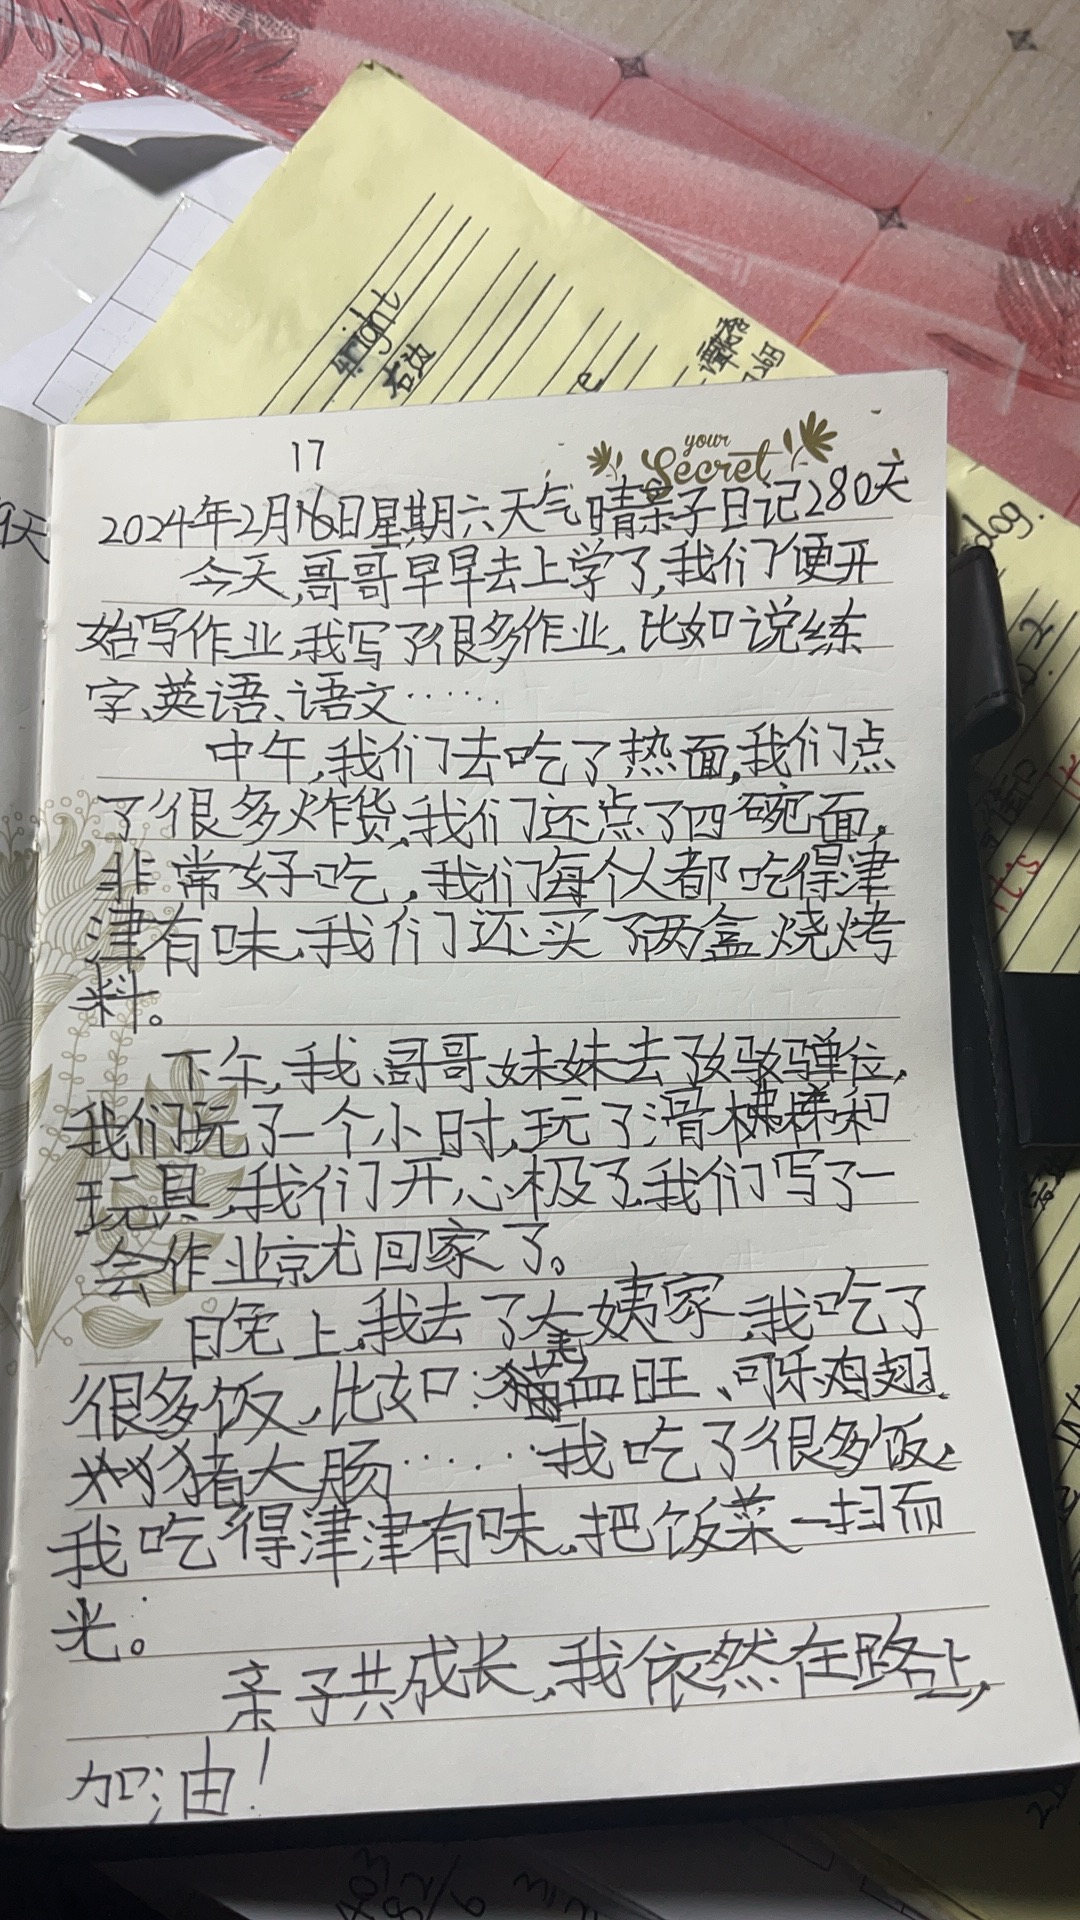 4. right
右边
your
Secret
17
2024年2月16日星期六天气晴亲子日记280天
今天,哥哥早早去上学了,我们便开
始写作业,我写了很多作业,比如说练
字、英语、语文……
中午,我们去吃了热面,我们点
了很多炸货,我们还点了四碗面,
非常好吃,我们每个人都吃得津
津有味,我们还买了两盒烧烤
料。
下午,我、哥哥、妹妹去了妈妈单位,
我们玩了一个小时,玩了滑梯和
玩具,我们开心极了,我们写了一
会作业就回家了。
晚上,我去了大姨家,我吃了
很多饭,比如:毛血旺、可乐鸡翅、
炒猪大肠……我吃了很多饭,
我吃得津津有味,把饭菜一扫而
光。
亲子共成长,我依然在路上,
加油!
9天
dog.
it's